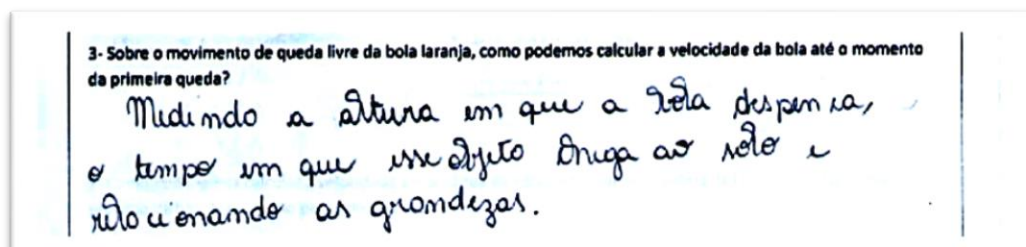 3- Sobre o movimento de queda livre da bola laranja, como podemos calcular a velocidade da bola até o momento
da primeira queda?
Medindo a altura em que a bola despenca,
o tempo em que esse objeto chega ao solo e
relacionando as grandezas.